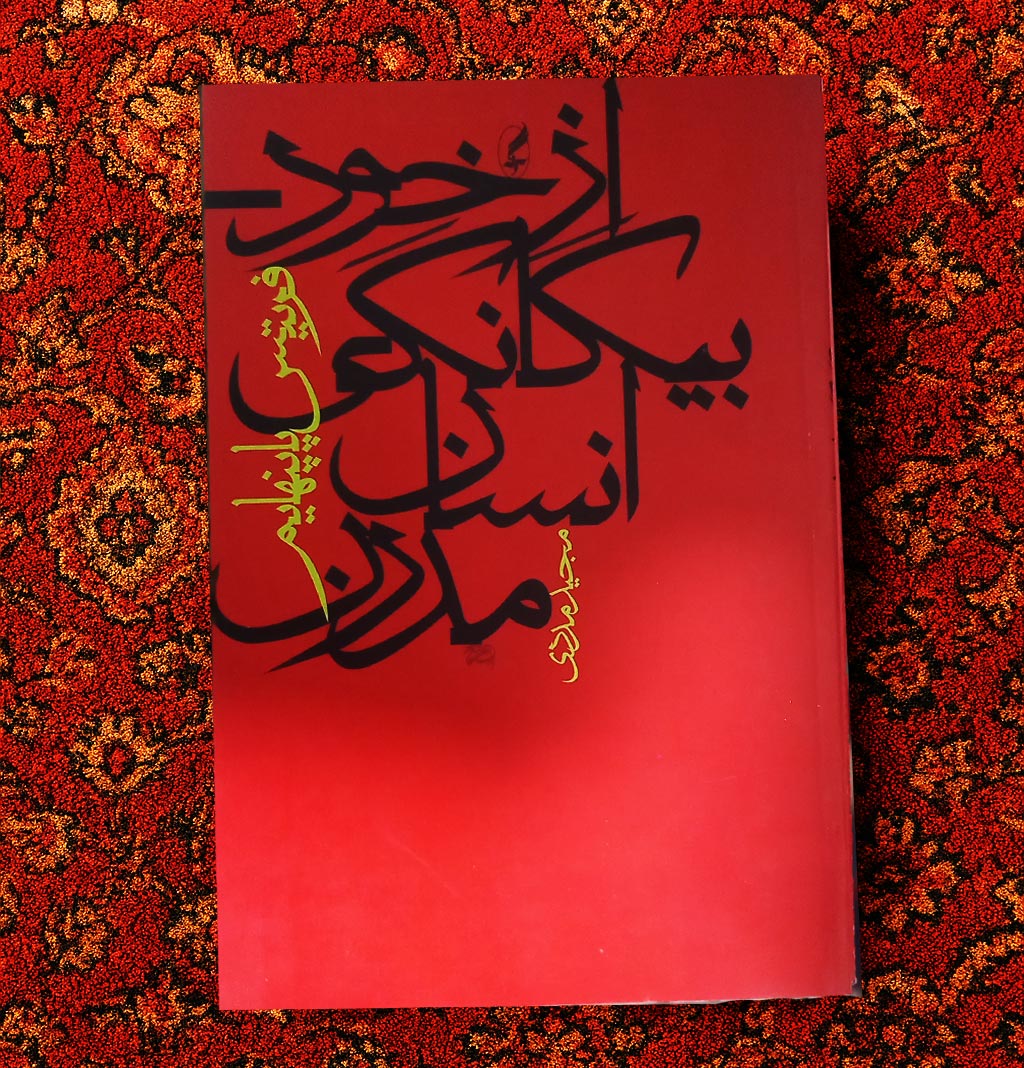 از خود-
بیگانگی
انسان
مدرن
فریتس پاپنهایم
مجید مددی